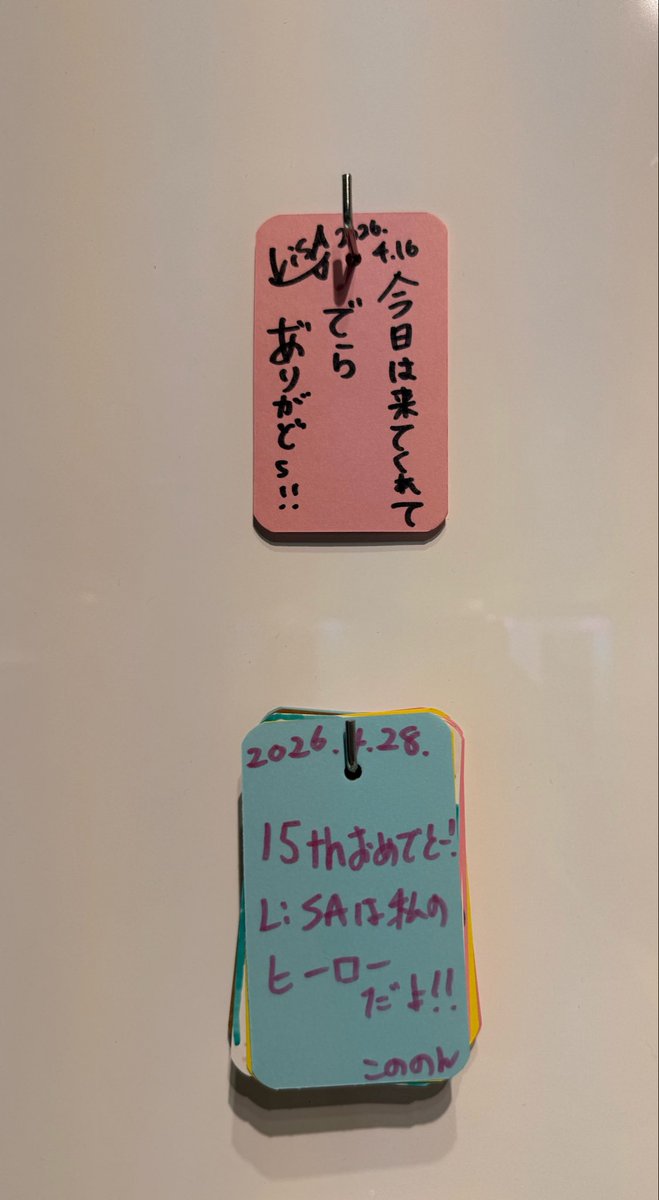 LiSA
2026.
4.16
今日は来てくれて
でら
ありがどs!!
2026.4.28.
15thおめでとー!
LiSAは私の
ヒーロー
だよ!!
このの人